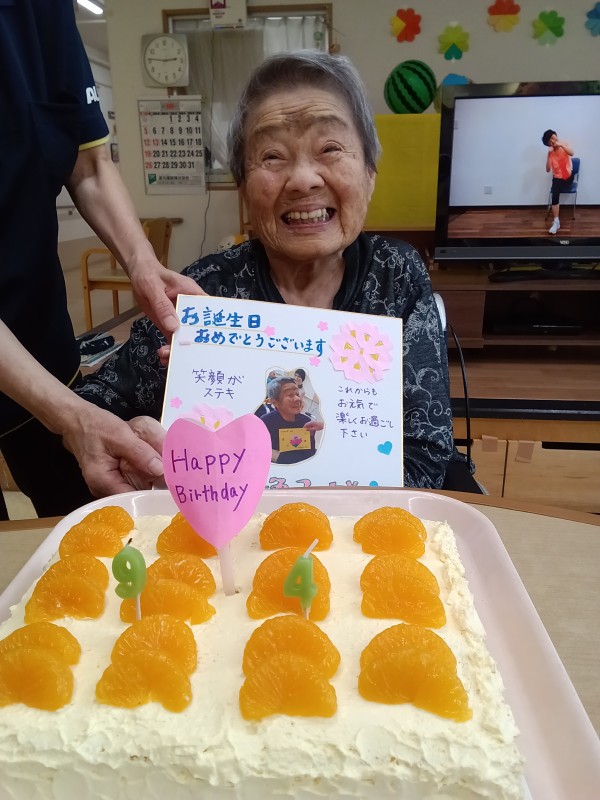 お誕生日
おめでとうございます
笑顔が
ステキ
これからも
お元気で
楽しくお過ごし
下さい
Happy
Birthday
9
4